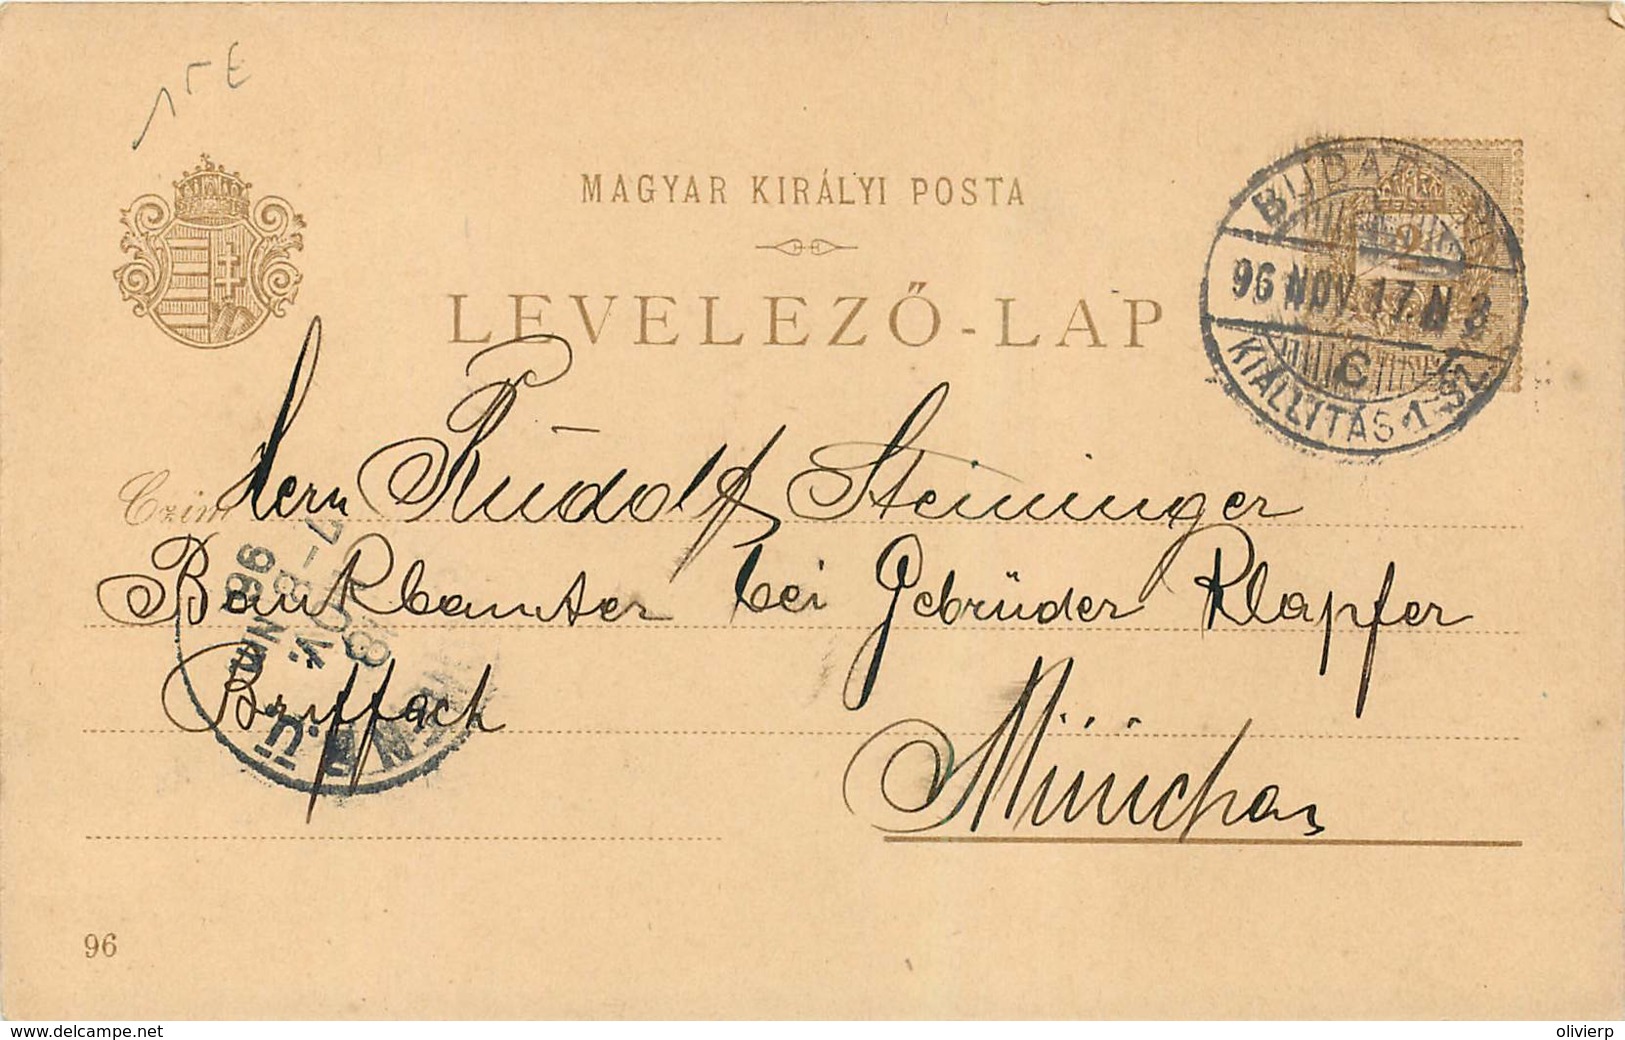 15 €
MAGYAR KIRÁLYI POSTA
LEVELEZŐ-LAP
BUDAPEST
96 NOV. 17. N 3
C
KIÁLLITÁS 1 SZ.
Czim
Herrn Rudolf Steininger
Bankbeamter bei Gebrüder Klapfer
München
18
NOV.
7-8
NM 96
96
www.delcampe.net
olivierp